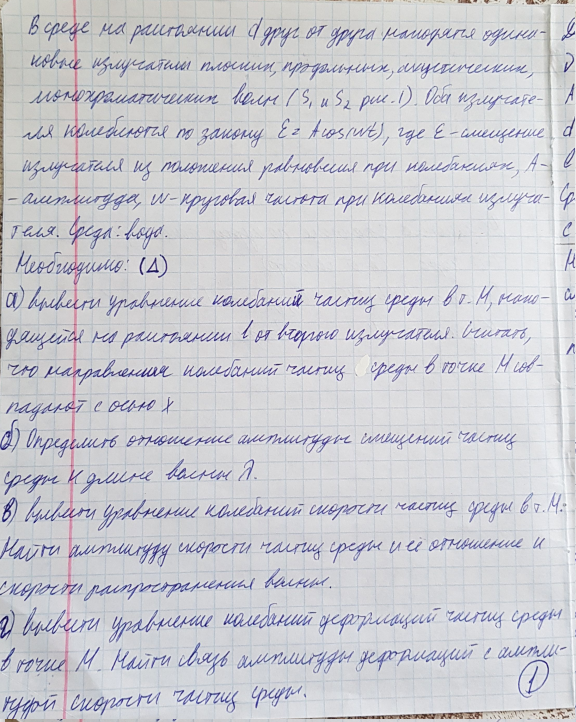 В среде на расстоянии d друг от друга находятся одина-
ковые излучатели плоских, продольных, акустических,
монохроматических волн (S₁ и S₂ рис. 1). Оба излучате-
ля колеблются по закону Ɛ = A cos(wt), где Ɛ - смещение
излучателя из положения равновесия при колебаниях, A-
- амплитуда, w - круговая частота при колебаниях излуча-
теля. Среда: вода.
Необходимо: (Δ)
а) вывести уравнение колебаний частиц среды в т. М, нахо-
дящейся на расстоянии l от второго излучателя. Считать,
что направления колебаний частиц среды в точке М сов-
падают с осью х
б) Определить отношение амплитуды смещений частиц
среды к длине волны λ.
в) вывести уравнение колебаний скорости частиц среды в т. М.
Найти амплитуду скорости частиц среды и её отношение к
скорости распространения волны.
г) вывести уравнение колебаний деформаций частиц среды
в точке М. Найти связь амплитуды деформаций с ампли-
тудой скорости частиц среды.
1